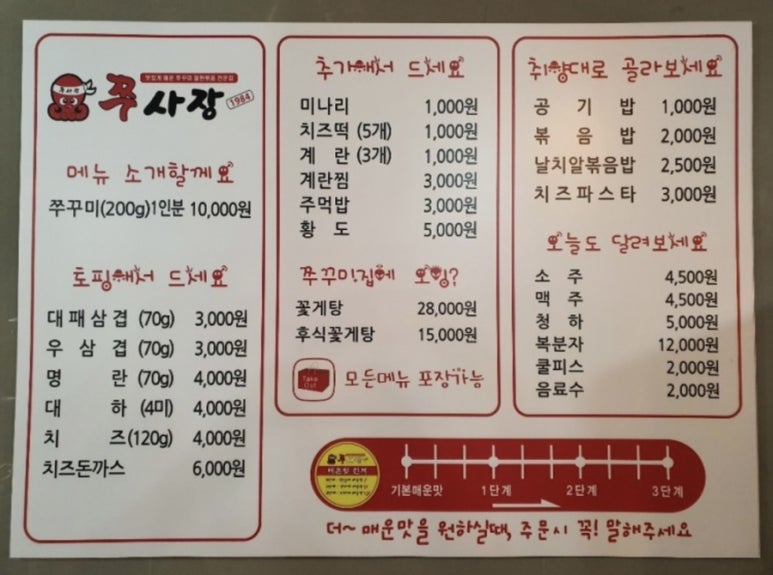 맛있게 매운 쭈꾸미 철판볶음 전문점
쭈사장
쭈사장 1984
메뉴 소개할께요
쭈꾸미(200g)1인분 10,000원
토핑해서 드세요
대패삼겹 (70g) 3,000원
우삼겹 (70g) 3,000원
명란 (70g) 4,000원
대하 (4미) 4,000원
치즈(120g) 4,000원
치즈돈까스 6,000원
추가해서 드세요
미나리 1,000원
치즈떡 (5개) 1,000원
계란 (3개) 1,000원
계란찜 3,000원
주먹밥 3,000원
황도 5,000원
쭈꾸미집에 오잉?
꽃게탕 28,000원
후식꽃게탕 15,000원
Take
Out
모든메뉴 포장가능
취향대로 골라보세요
공기밥 1,000원
볶음밥 2,000원
날치알볶음밥 2,500원
치즈파스타 3,000원
오늘도 달려보세요
소주 4,500원
맥주 4,500원
청하 5,000원
복분자 12,000원
쿨피스 2,000원
음료수 2,000원
매운맛 단계
기본매운맛 1단계 2단계 3단계
더~ 매운맛을 원하실때, 주문시 꼭! 말해주세요